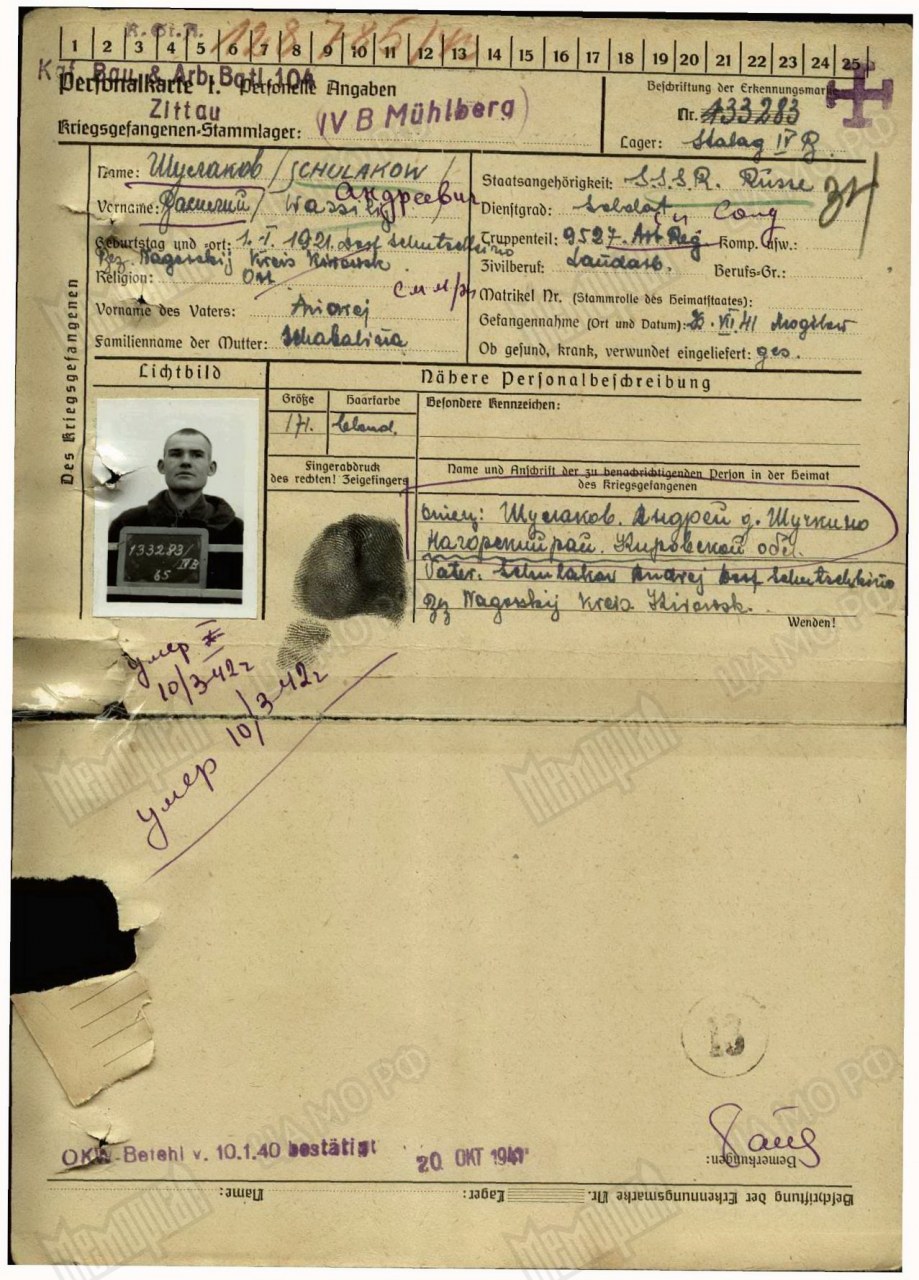 K. St. A.
128785/
1 2 3 4 5 6 7 8 9 10 11 12 13 14 15 16 17 18 19 20 21 22 23 24 25
Kgf. Bau & Arb. Batl. 10A
Personalkarte I: Personelle Angaben
Zittau
Kriegsgefangenen-Stammlager: IV B Mühlberg
Beschriftung der Erkennungsmarke
Nr. 133283
Lager: Stalag IV B
Des Kriegsgefangenen
Name: Шуслаков / SCHULAKOW /
Vorname: Василий / Wassilij Андреевич
Geburtstag und -ort: 1. I. 1921. Dorf Schutschkino
Bez. Nagorskij Kreis Kirowsk
Religion: Ort.
Vorname des Vaters: Andrej
Familienname der Mutter:
Staatsangehörigkeit: S.S.S.R. Russe
Dienstgrad: Soldat
Truppenteil: 9527. Art Reg Komp. usw.:
Zivilberuf: Landarb. Berufs-Gr.:
Matrikel Nr. (Stammrolle des Heimatstaates):
Gefangennahme (Ort und Datum): VII. 41 Mogilew
Ob gesund, krank, verwundet eingeliefert: ges.
34
Lichtbild
Nähere Personalbeschreibung
Größe
Haarfarbe
Besondere Kennzeichen:
171.
blond.
Fingerabdruck
des rechten! Zeigefingers
Name und Anschrift der zu benachrichtigenden Person in der Heimat
des Kriegsgefangenen
133283/
IVB
65
отец: Шуслаков. Андрей д. Шучкино
Нагорский рай. Кировской обл.
Vater: Schulakov Andrej Dorf Schutschkino
Bez Nagorskij Kreis Kirowsk.
Wenden!
умер
10/3-42г
умер 10/3-42г
13
OKW-Befehl v. 10.1.40 bestätigt
20. OKT 1941
Bemerkungen:
Beschriftung der Erkennungsmarke Nr. Lager: Name:
Мемориал
ЦАМО РФ